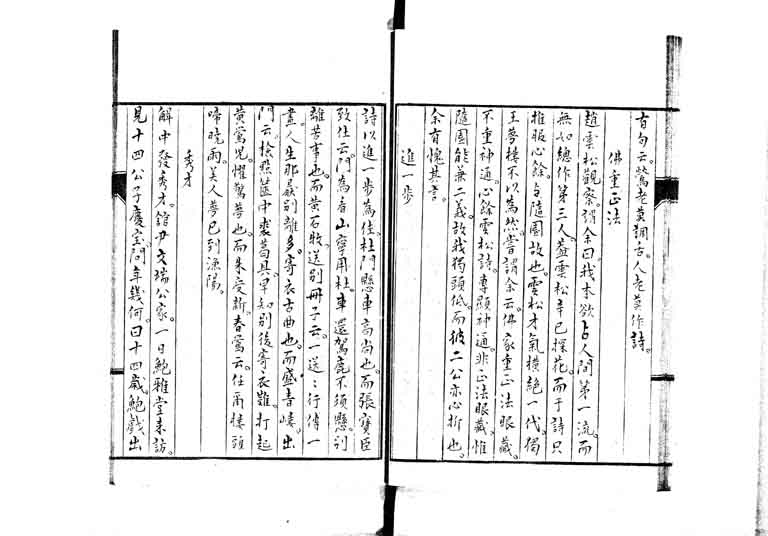 古句云。鶯老莫調舌。人老莫作詩。
佛重正法
趙雲松觀察。謂余曰。我本欲占人間第一流。而
無如總作第三人。蓋雲松辛巳探花。而于詩只
推服心餘與隨園故也。雲松才氣橫絕一代。獨
王夢樓不以為然。嘗謂余云。佛家重正法眼藏。
不重神通。心餘雲松詩。專顯神通。非正法眼藏。惟
隨園能兼二義。故我獨頭低。而彼二公亦心折也。
余有愧其言。
進一步
詩以進一步為佳。杜門懸車高尚也。而張寶臣
致仕云。門為看山寧用杜。車還駕鹿不須懸。別
離苦事也。而黃石牧。送別冊子云。一送一行傳一
畫。人生那厭別離多。寄衣古曲也。而盛青嶁。出
門云。檢點篋中裘葛具。早知別後寄衣難。打起
黃鶯兒。懼驚夢也。而朱受新。春鶯云。任爾樓頭
啼曉雨。美人夢已到漁陽。
秀才
解中發秀才。館尹文端公家。一日鮑雅堂來訪。
見十四公子慶寶。問年幾何。曰十四歲。鮑戲出